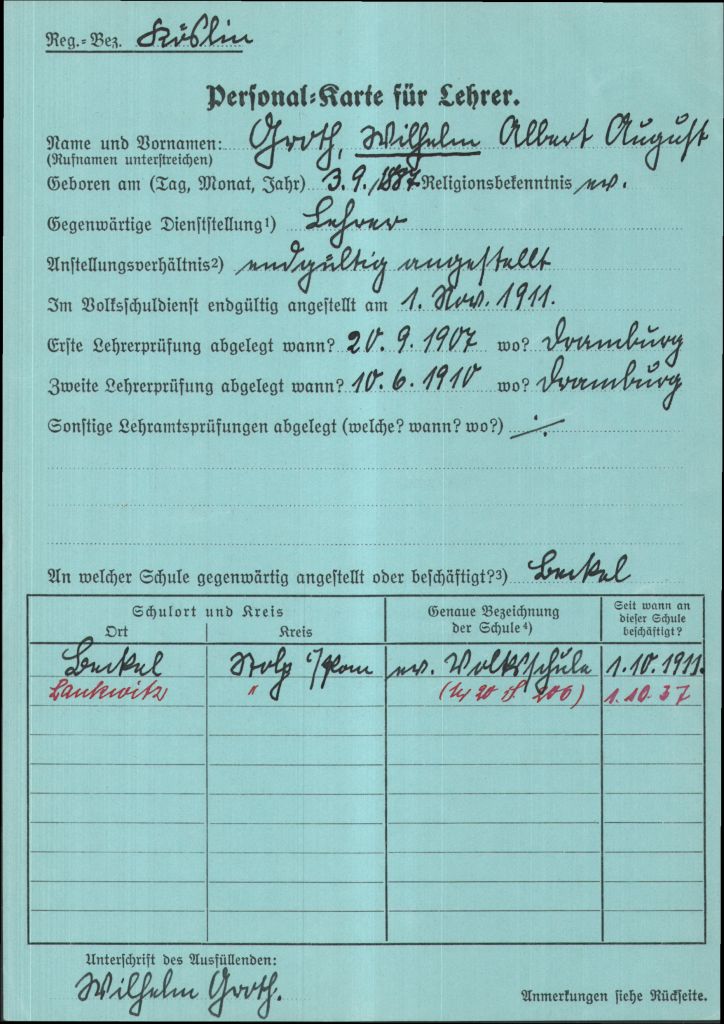 Reg.-Bez. Köslin
Personal-Karte für Lehrer.
Name und Vornamen: Groth, Wilhelm Albert August
(Rufnamen unterstreichen)
Geboren am (Tag, Monat, Jahr) 3. 9. 1887 Religionsbekenntnis ev.
Gegenwärtige Dienststellung¹) Lehrer
Anstellungsverhältnis²) endgültig angestellt
Im Volksschuldienst endgültig angestellt am 1. Nov. 1911.
Erste Lehrerprüfung abgelegt wann? 20. 9. 1907 wo? Dramburg
Zweite Lehrerprüfung abgelegt wann? 10. 6. 1910 wo? Dramburg
Sonstige Lehramtsprüfungen abgelegt (welche? wann? wo?) ./.
An welcher Schule gegenwärtig angestellt oder beschäftigt?³) Beckel
Schulort und Kreis
Ort Kreis
Genaue Bezeichnung
der Schule⁴)
Seit wann an
dieser Schule
beschäftigt?
Beckel Stolp i/Pom ev. Volksschule 1.10.1911.
Lankwitz " 20 200) 1.10.37
Unterschrift des Ausfüllenden:
Wilhelm Groth.
Anmerkungen siehe Rückseite.